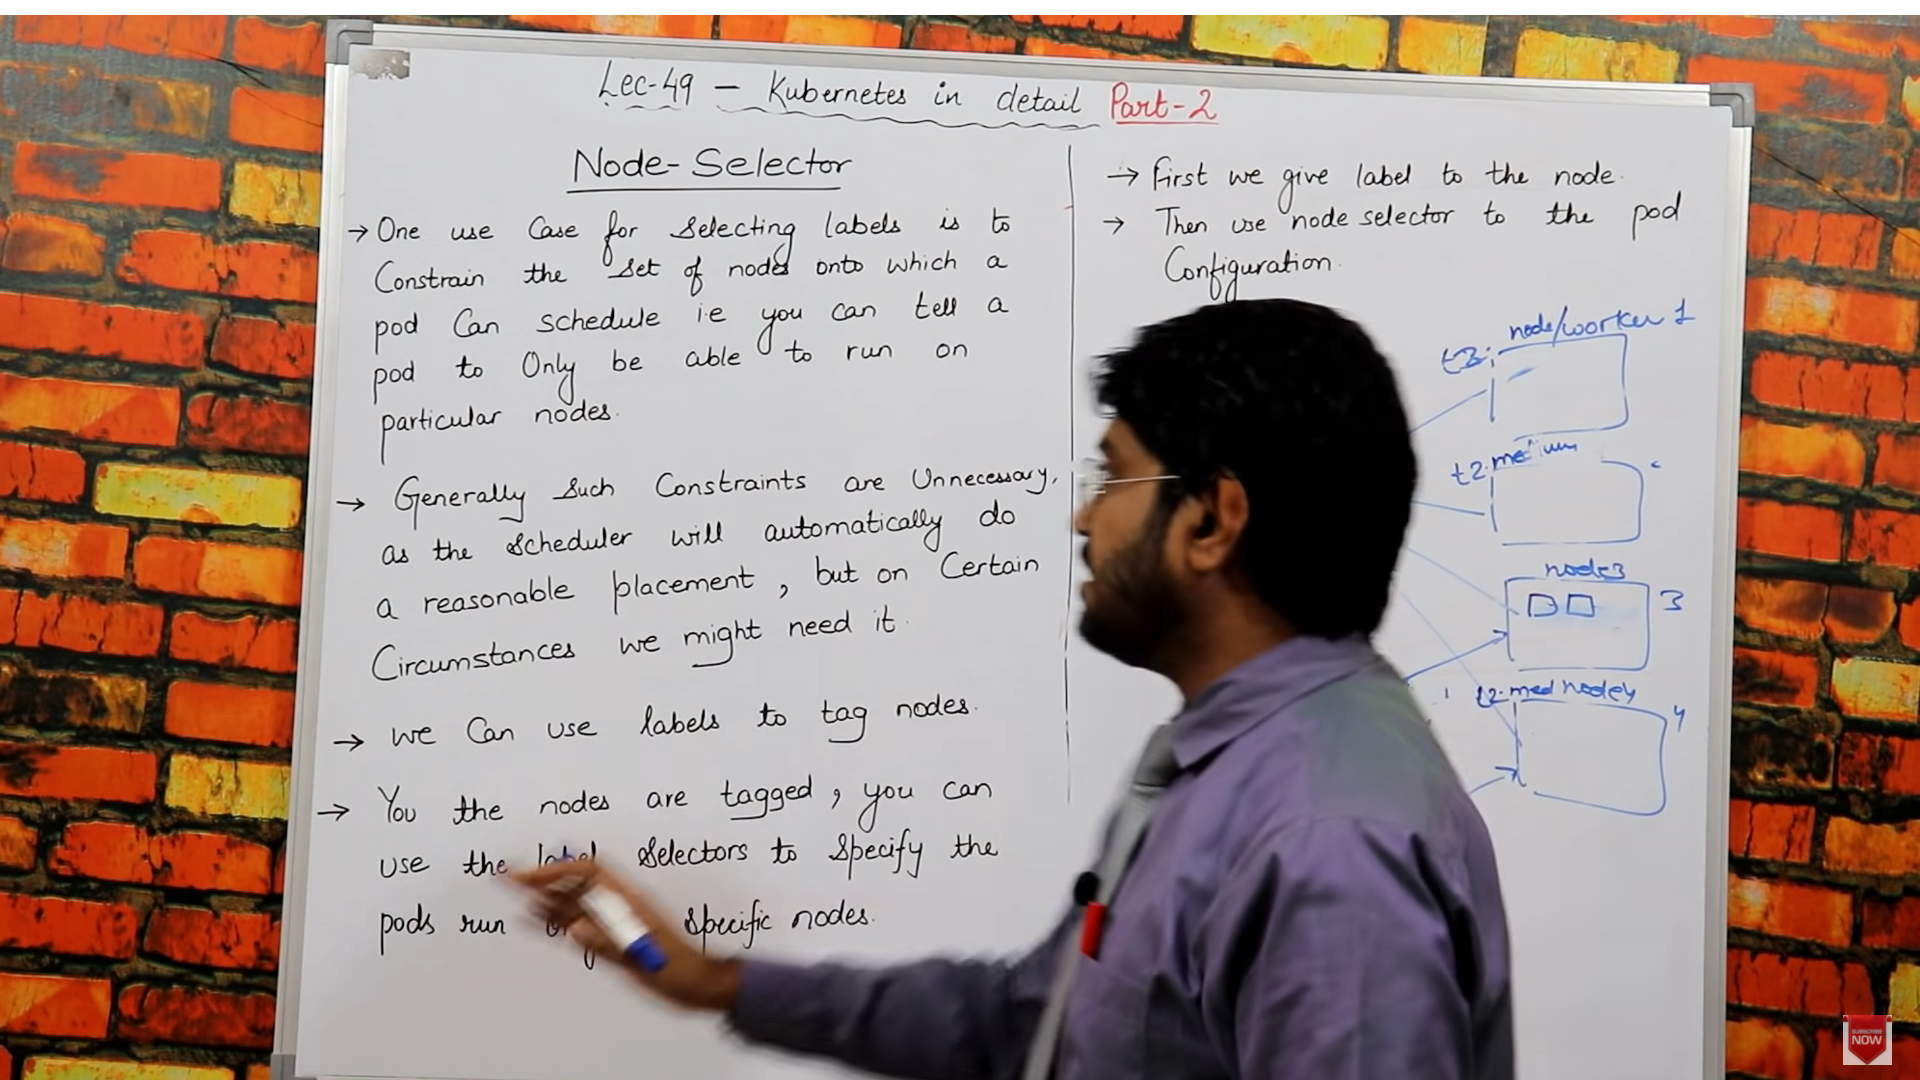 Lec-49 - Kubernetes in detail Part-2
Node-Selector
→ One use Case for Selecting labels is to
Constrain the set of nodes onto which a
pod Can schedule i.e you can tell a
pod to Only be able to run on
particular nodes.
→ Generally such Constraints are Unnecessary,
as the scheduler will automatically do
a reasonable placement, but on Certain
Circumstances we might need it.
→ we Can use labels to tag nodes.
→ You the nodes are tagged, you can
use the label Selectors to Specify the
pods run specific nodes.
→ First we give label to the node.
→ Then use node selector to the pod
Configuration.
node/worker 1
t2.medium
node3
3
t2.med node4
4
SUBSCRIBE
NOW